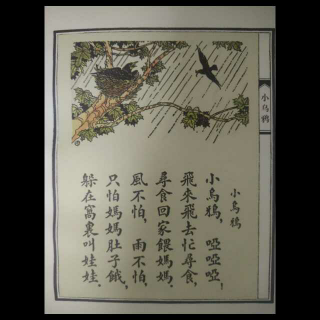 小烏鴉
小烏鴉
小烏鴉，啞啞啞，
飛來飛去忙尋食，
尋食回家餵媽媽，
風不怕，雨不怕，
只怕媽媽肚子餓，
躲在窩裏叫娃娃。